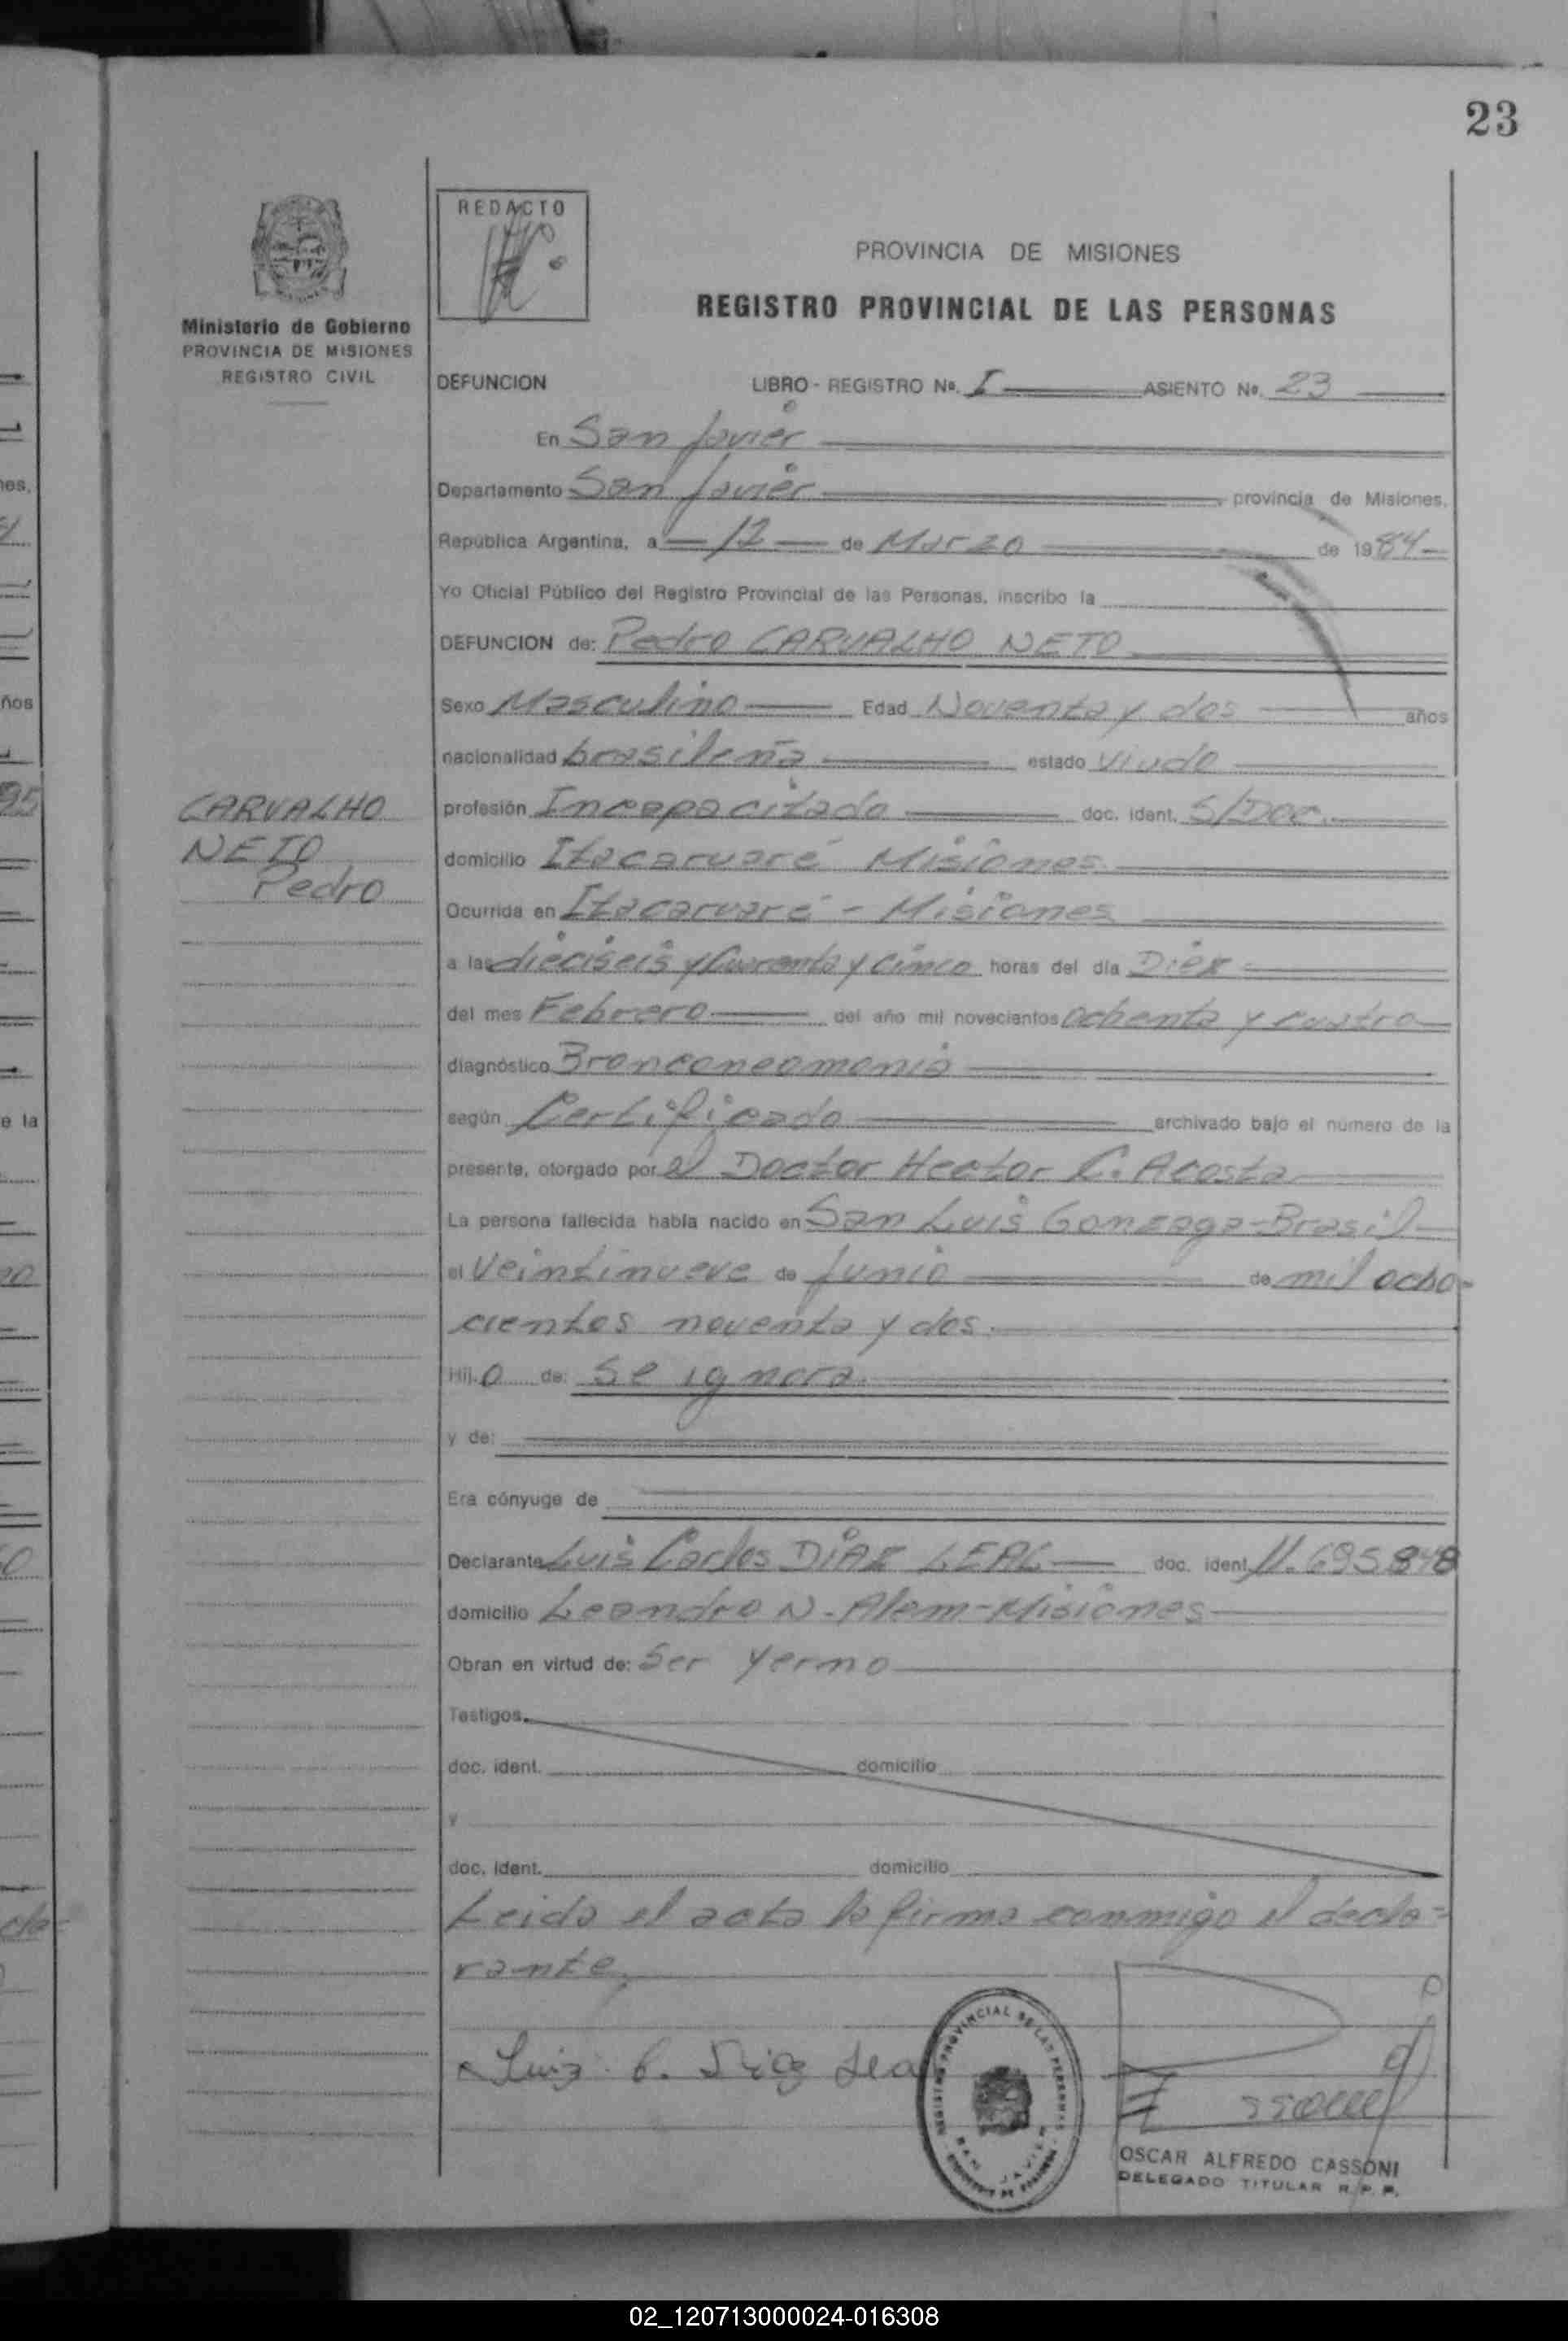 23
REDACTO
PROVINCIA DE MISIONES
REGISTRO PROVINCIAL DE LAS PERSONAS
Ministerio de Gobierno
PROVINCIA DE MISIONES
REGISTRO CIVIL
DEFUNCION LIBRO - REGISTRO Nº. I ASIENTO Nº. 23
En San Javier
Departamento San Javier, provincia de Misiones,
República Argentina, a 12 de Marzo de 1984
Yo Oficial Público del Registro Provincial de las Personas, inscribo la
DEFUNCION de: Pedro CARVALHO NETO
Sexo Masculino Edad Noventa y dos años
nacionalidad brasileña estado viudo
CARVALHO
NETO
Pedro
profesión Incapacitado doc. ident. S/Doc.
domicilio Itacaruaré Misiones
Ocurrida en Itacaruaré - Misiones
a las dieciseis y Cuarenta y Cinco horas del día Diez
del mes Febrero del año mil novecientos ochenta y cuatro
diagnóstico Bronconeomonia
según Certificado archivado bajo el número de la
presente, otorgado por el Doctor Hector C. Acosta
La persona fallecida había nacido en San Luis Gonzaga-Brasil
el Veintinueve de Junio de mil ocho-
cientos noventa y dos.
Hij o de: se ignora.
y de:
Era cónyuge de
Declarante Luis Carlos DIAZ LEAL doc. ident. 11.695.848
domicilio Leandro N. Alem-Misiones
Obran en virtud de: Ser yerno
Testigos
doc. ident. domicilio
y
doc. ident. domicilio
Leida el acta la firma conmigo el decla=
rante,
Luiz C. Diaz Lea
REGISTRO PROVINCIAL DE LAS PERSONAS
SAN JAVIER
OSCAR ALFREDO CASSONI
DELEGADO TITULAR R. P. P.
02_120713000024-016308